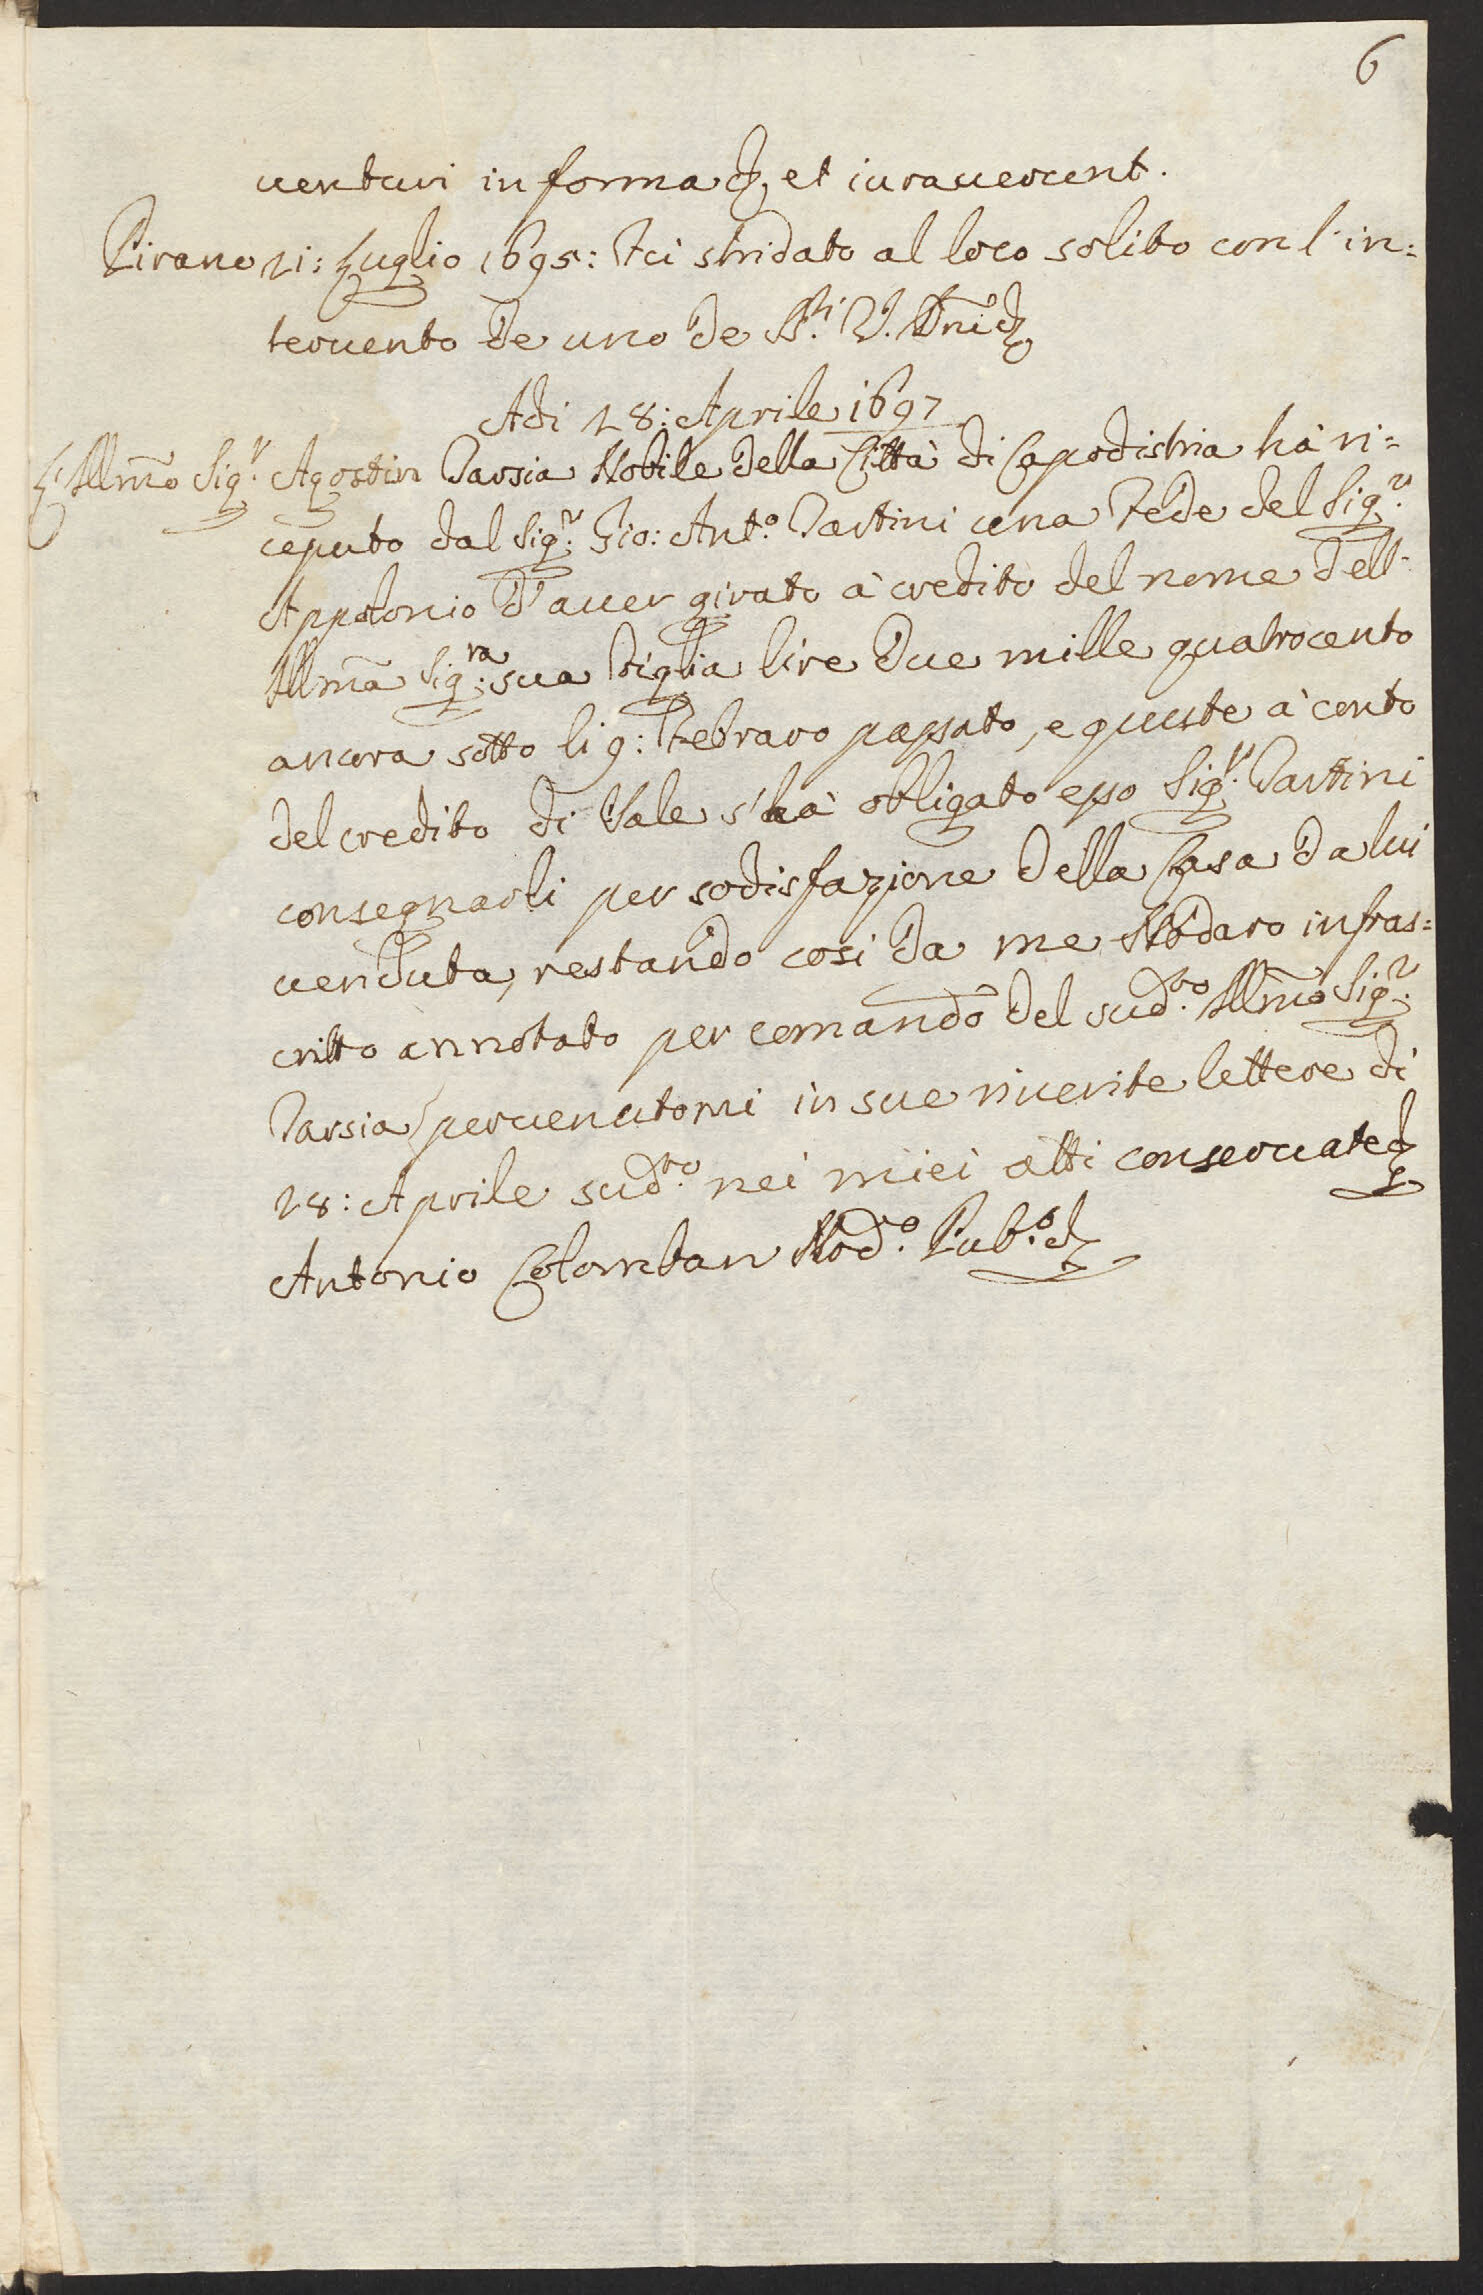 6
uenturi in forma &, et iurauerunt.
Pirano 21: Luglio 1695: Fù stridato al loco solito con l'in=
teruento de uno de S.ri V. Dni &
Adi 28: Aprile 1697
L'Illmo Sig.r Agostin Tarsia Nobile della Città di Capodistria hà ri=
ceputo dal Sig.r Gio: Ant.o Tartini una Fede del Sig.r
Appolonio d'auer girato à credito del nome dell'
Illma Sig.ra sua Figlia lire due mille quatrocento
ancora sotto li 9: Febraro passato, e queste à conto
del credito di Sale s'hà obligato esso Sig.r Tartini
consegnarli per sodisfazione della Casa da lui
uenduta, restando cosi da me Nodaro infras=
critto annotato per comando del sud.to Illmo Sig.r
Tarsia peruenutomi in sue riuerite lettere di
28: Aprile sud.to nei miei atti conseruate &
Antonio Colomban Nod.o Pub.o &